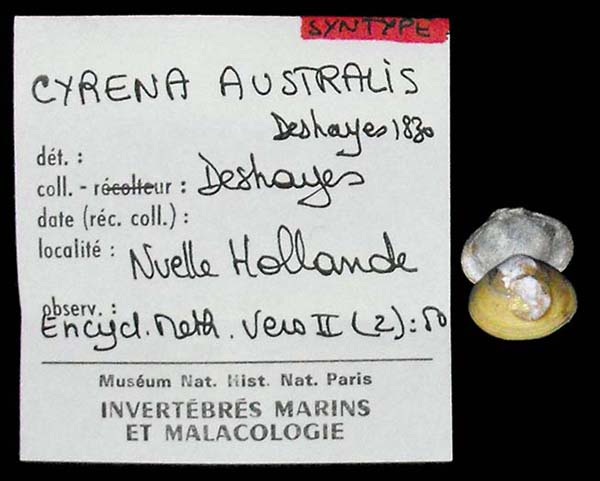 SYNTYPE
CYRENA AUSTRALIS
Deshayes 1830
dét. :
coll. - récolteur : Deshayes
date (réc. coll.) :
localité : Nvelle Hollande
observ. :
Encycl. Meth. Vers II (2) : 50
Muséum Nat. Hist. Nat. Paris
INVERTÉBRÉS MARINS
ET MALACOLOGIE